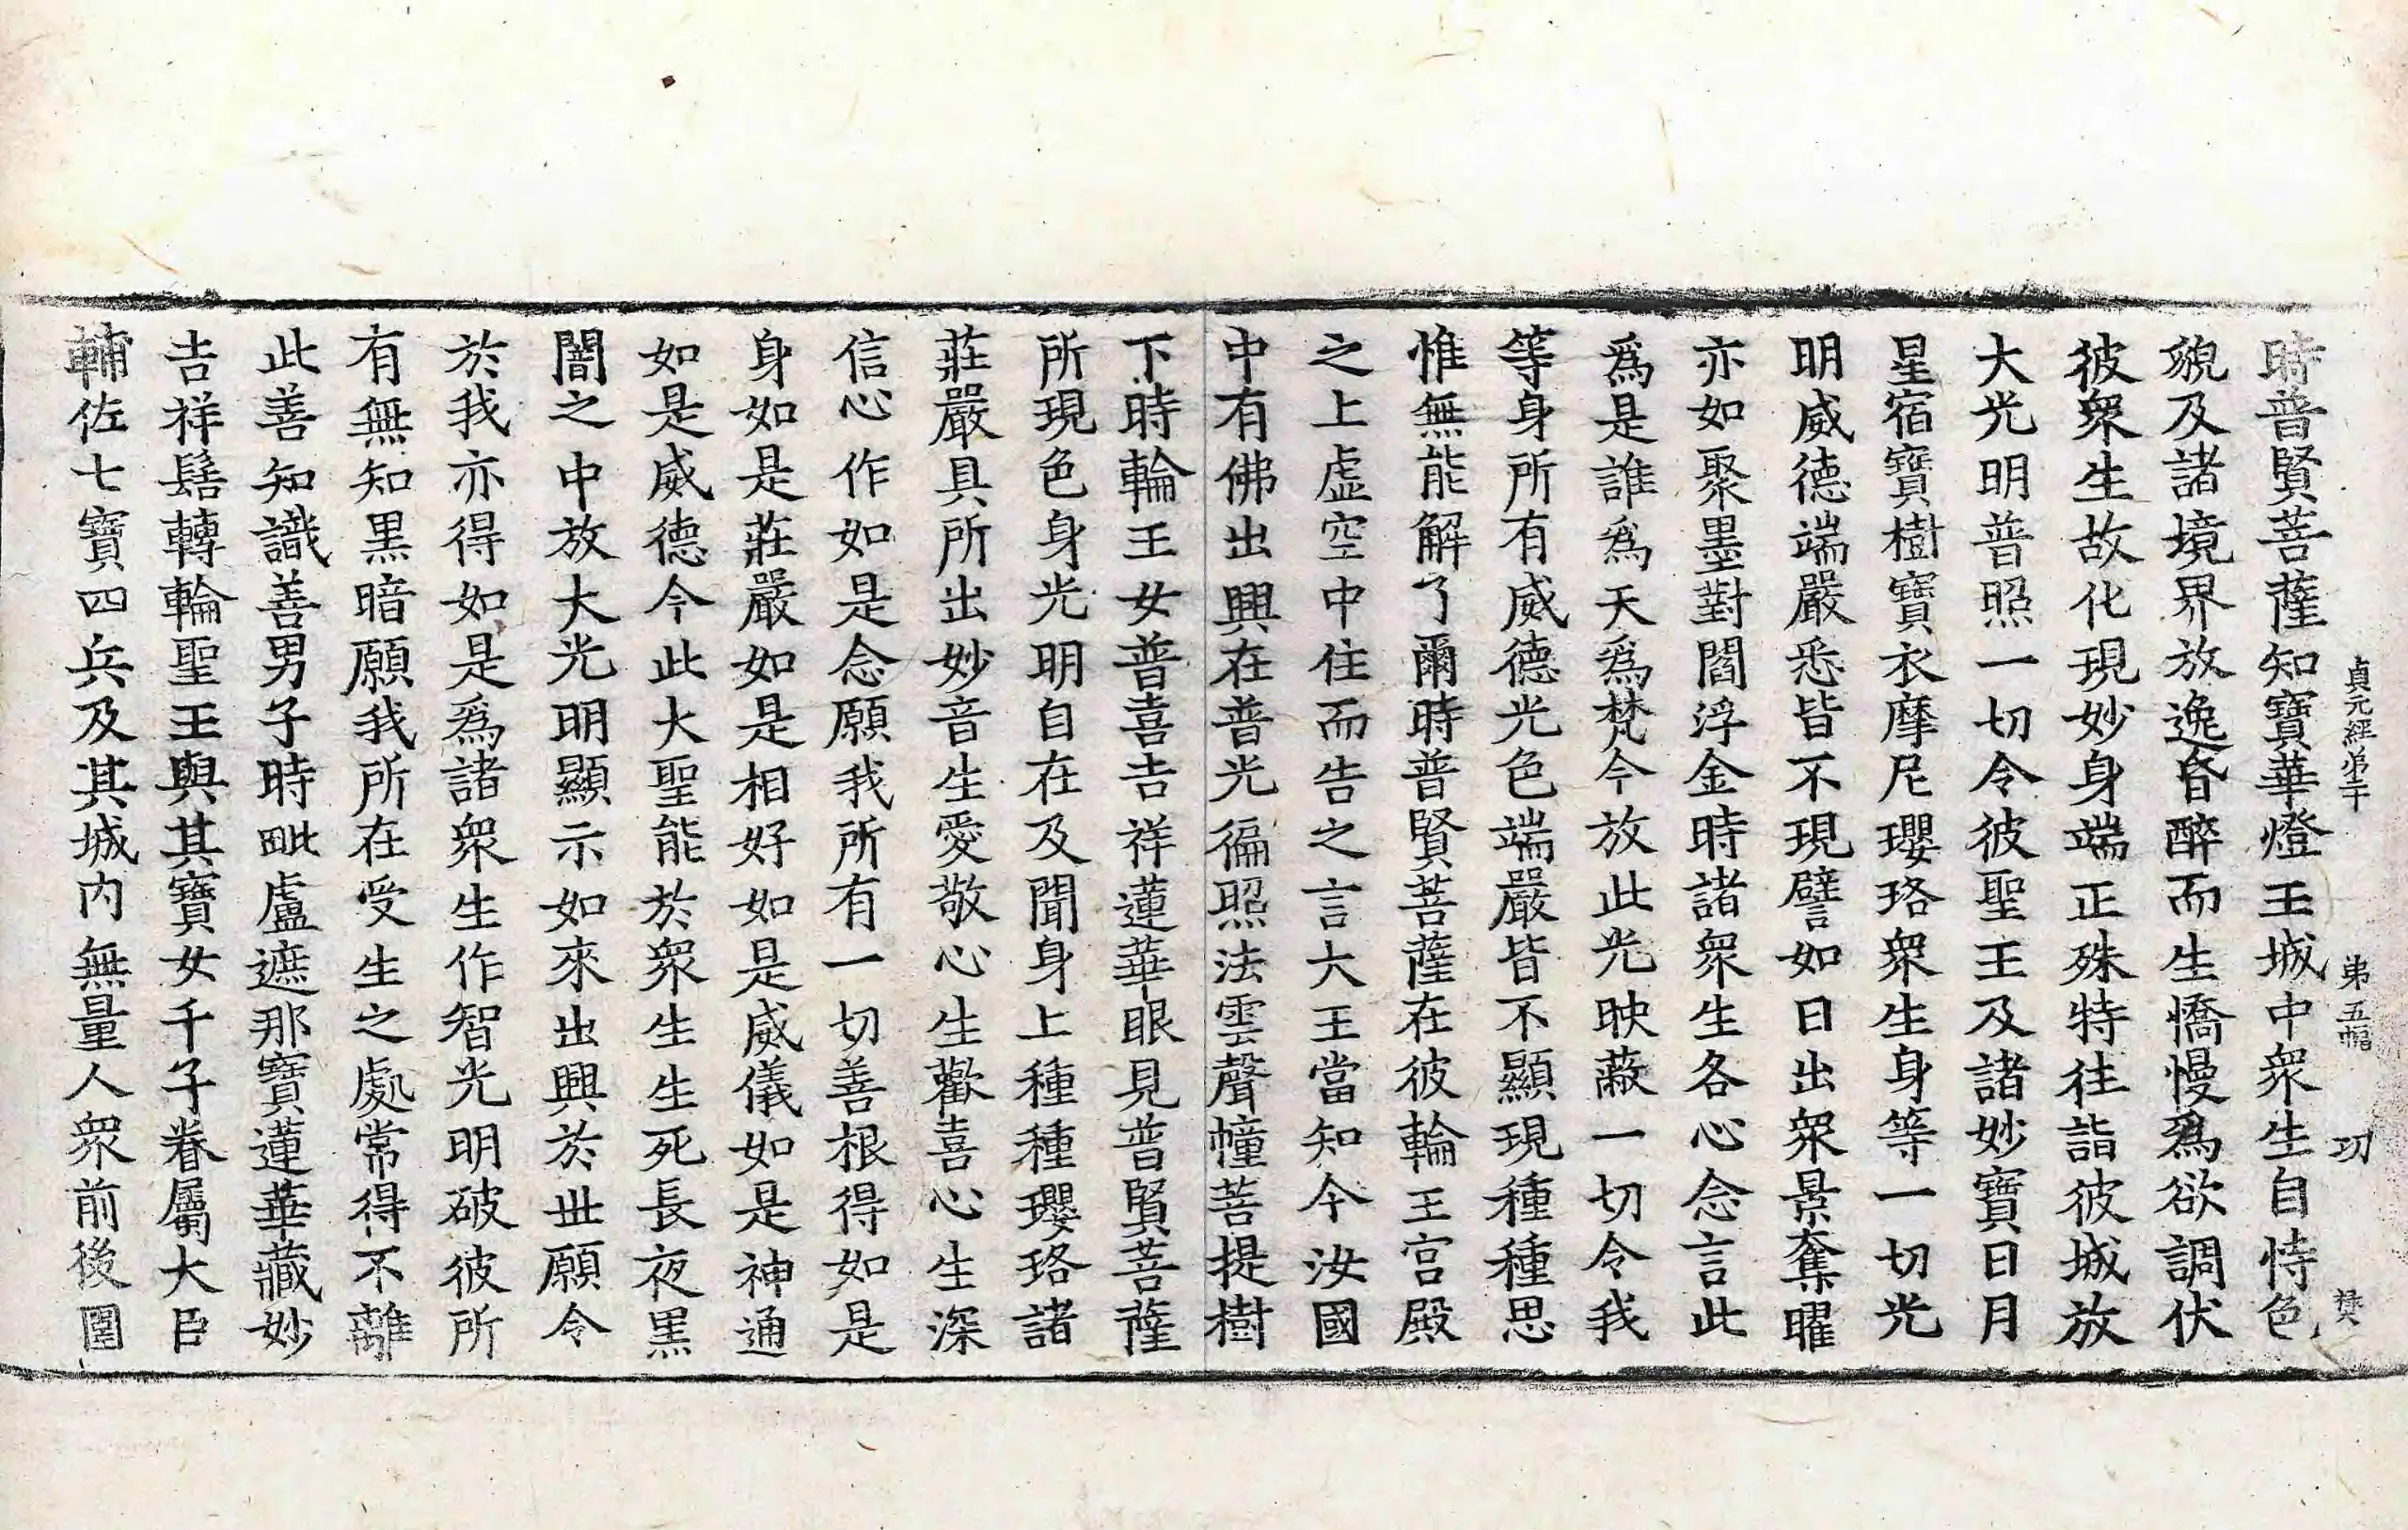 貞元經第二十 第五幅 功 樊
時普賢菩薩知寶華燈王城中衆生自恃色
貌及諸境界放逸昏醉而生憍慢爲欲調伏
彼衆生故化現妙身端正殊特往詣彼城放
大光明普照一切令彼聖王及諸妙寶日月
星宿寶樹寶衣摩尼瓔珞衆生身等一切光
明威德端嚴悉皆不現譬如日出衆景奪曜
亦如聚墨對閻浮金時諸衆生各心念言此
爲是誰爲天爲梵今放此光映蔽一切令我
等身所有威德光色端嚴皆不顯現種種思
惟無能解了爾時普賢菩薩在彼輪王宮殿
之上虛空中住而告之言大王當知今汝國
中有佛出興在普光徧照法雲聲幢菩提樹
下時輪王女普喜吉祥蓮華眼見普賢菩薩
所現色身光明自在及聞身上種種瓔珞諸
莊嚴具所出妙音生愛敬心生歡喜心生深
信心作如是念願我所有一切善根得如是
身如是莊嚴如是相好如是威儀如是神通
如是威德今此大聖能於衆生生死長夜黑
闇之中放大光明顯示如來出興於世願令
於我亦得如是爲諸衆生作智光明破彼所
有無知黑暗願我所在受生之處常得不離
此善知識善男子時毗盧遮那寶蓮華藏妙
吉祥髻轉輪聖王與其寶女千子眷屬大臣
輔佐七寶四兵及其城内無量人衆前後圍